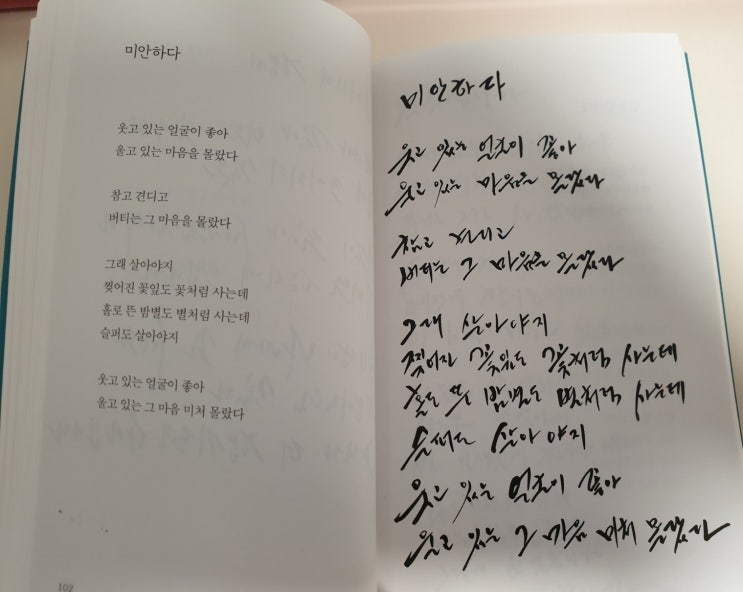 미안하다
웃고 있는 얼굴이 좋아
울고 있는 마음을 몰랐다
참고 견디고
버티는 그 마음을 몰랐다
그래 살아야지
찢어진 꽃잎도 꽃처럼 사는데
홀로 뜬 밤별도 별처럼 사는데
슬퍼도 살아야지
웃고 있는 얼굴이 좋아
울고 있는 그 마음 미처 몰랐다
102
미안하다
웃고 있는 얼굴이 좋아
웃고 있는 마음을 몰랐다
참고 견디고
버티는 그 마음을 몰랐다
그래 살아야지
찢어진 꽃잎도 꽃처럼 사는데
홀로 뜬 밤별도 별처럼 사는데
슬퍼도 살아야지
웃고 있는 얼굴이 좋아
울고 있는 그 마음 미처 몰랐다